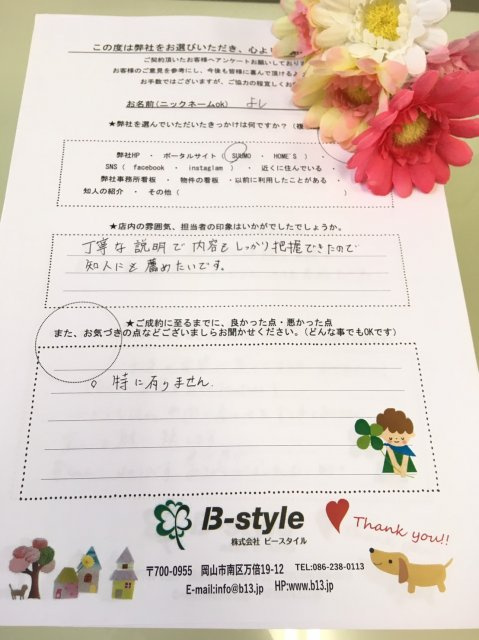 この度は弊社をお選びいただき、心よ
ご契約頂いたお客様へアンケートお願いしており
お客様のご意見を参考にし、今後も皆様に喜んで頂ける
お手数ではございますが、ご協力の程宜しくお
お名前(ニックネームok) よし
★弊社を選んでいただいたきっかけは何ですか?(複
弊社HP ・ ポータルサイト( SUUMO ・ HOME'S ) ・
SNS( facebook ・ instaglam ) ・ 近くに住んでいる ・
弊社事務所看板 ・ 物件の看板 ・以前に利用したことがある ・
知人の紹介 ・ その他( )
★店内の雰囲気、担当者の印象はいかがでしたでしょうか。
丁寧な説明で内容もしっかり把握できたので
知人にも薦めたいです。
★ご成約に至るまでに、良かった点・悪かった点
また、お気づきの点などございましらお聞かせください。(どんな事でもOKです)
。特に有りません.
B-style
株式会社 ビースタイル
Thank you!!
〒700-0955 岡山市南区万倍19-12 TEL:086-238-0113
E-mail:info@b13.jp HP:www.b13.jp